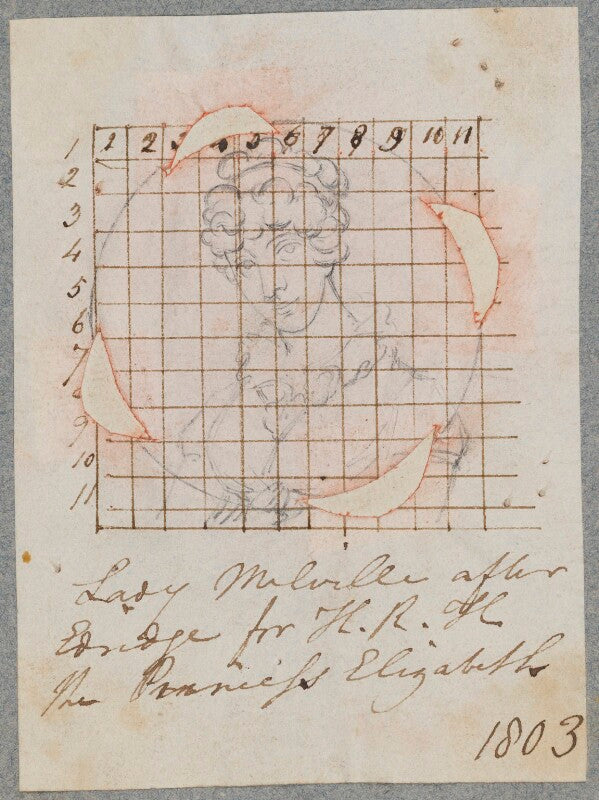 1 2 3 4 5 6 7 8 9 10 11
1
2
3
4
5
6
7
9
10
11
Lady Melville after
Edridge for H. R. H
the Princess Elizabeth
1803